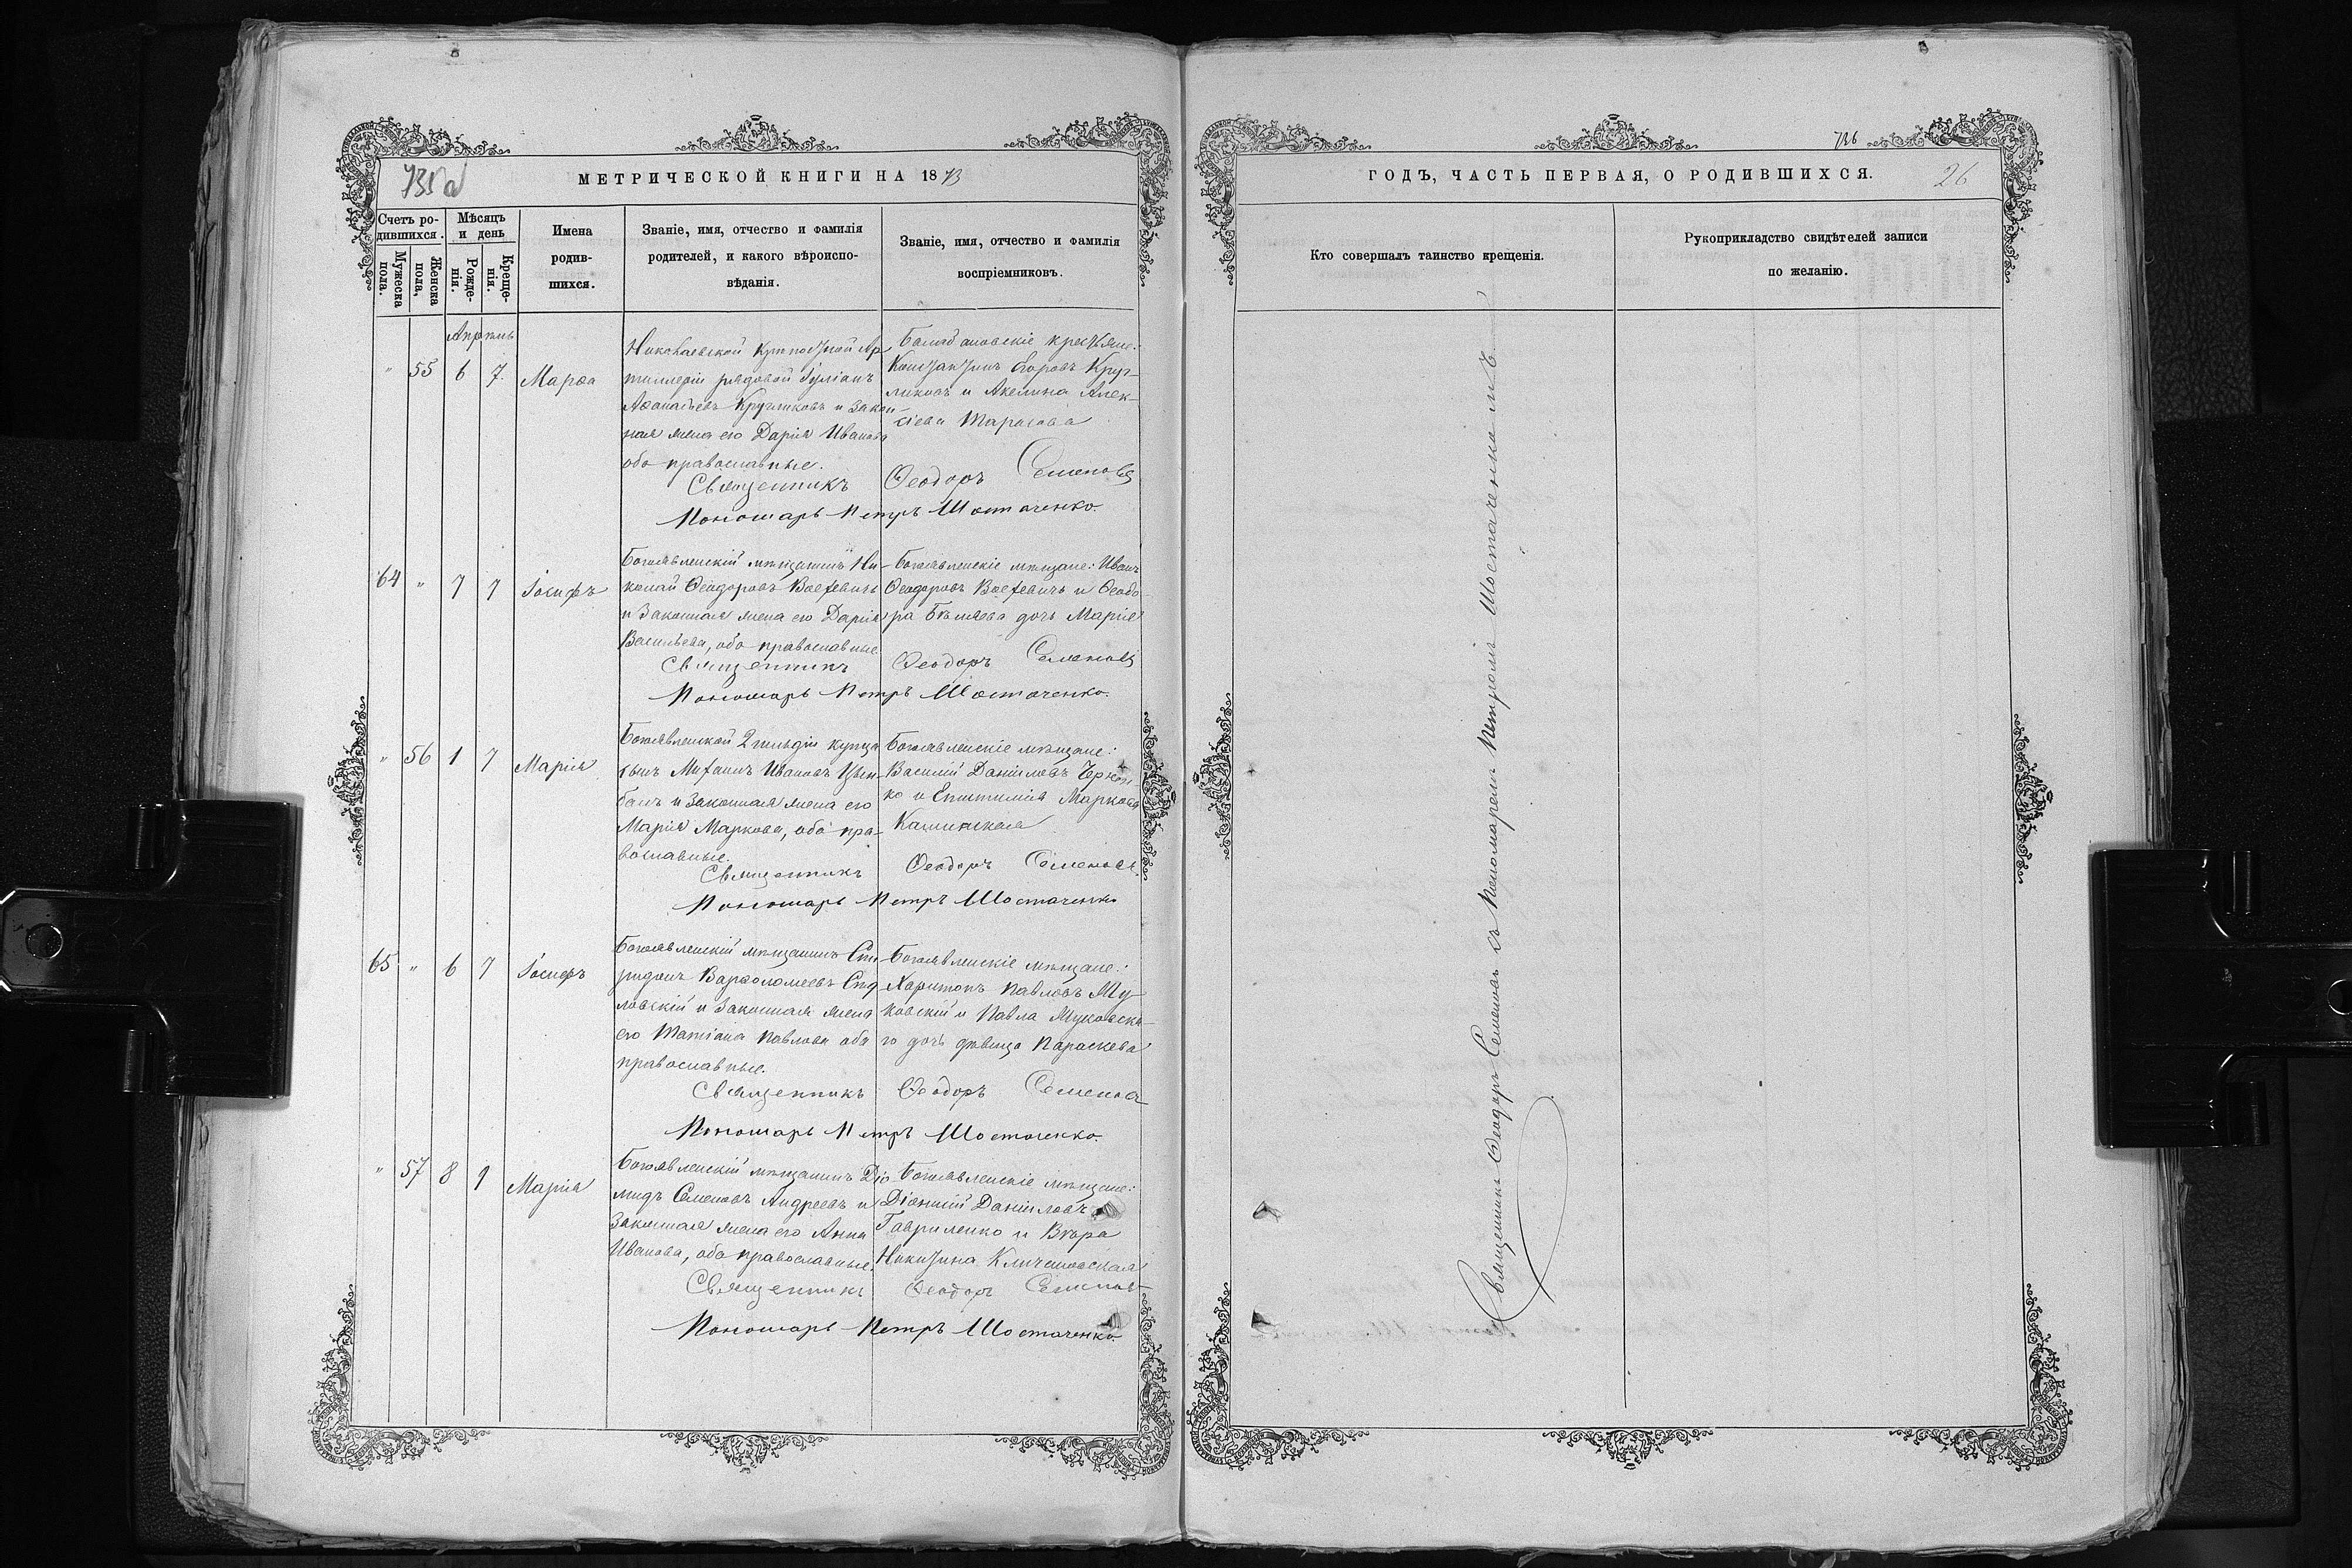 МЕТРИЧЕСКОЙ КНИГИ НА 1873
Счетъ ро-
дившихся.
Мѣсяцъ
и день
Мужеска
пола.
Женска
пола,
Рожде-
нія.
Креще-
нія.
Имена
родив-
шихся.
Званіе, имя, отчество и фамилія
родителей, и какого вѣроиспо-
вѣданія.
Званіе, имя, отчество и фамилія
воспріемниковъ.
Апрѣль
" 55 6 7. Марѳа
Николаевской Крѣпостной Ар
тиллеріи рядовой Іуліанъ
Аѳонасьевъ Кругликовъ и закон
ная жена его Дарія Иванова
оба православные.
Балабановскіе крестьяне:
Константинъ Егоровъ Круг-
ликовъ и Акелина Алек-
сіева Тарасова
Священникъ Ѳеодоръ Семеновъ
Пономарь Петръ Шостаченко.
64 " 7 7 Іосифъ
Богоявленскій мѣщанинъ Ни-
колай Ѳеодоровъ
и законная жена его Дарія
Васильева, оба православные
Богоявленскіе мѣщане: Иванъ
Ѳеодоровъ и Ѳеодо
ра Бѣляева дочь Марія
Священникъ Ѳеодоръ Семеновъ
Пономарь Петръ Шостаченко.
" 56 1 7 Марія
Богоявленской 2 гильдіи купца
сынъ Михаилъ Ивановъ Цым-
балъ и законная жена его
Марія Маркова, оба пра-
вославные.
Богоявленскіе мѣщане:
Василій Даніиловъ
ко и Епистимія Маркова
Священникъ Ѳеодоръ Семеновъ.
Пономарь Петръ Шостаченко
65 " 6 7 Іосифъ
Богоявленскій мѣщанинъ Спи
ридонъ Варѳоломеевъ
и законная жена
его Татіана Павлова оба
православные.
Богоявленскіе мѣщане:
Харитонъ Павловъ Му-
ковскій и Павла Муковска-
го дочь дѣвица Параскева
Священникъ Ѳеодоръ Семеновъ
Пономарь Петръ Шостаченко.
" 57 8 9 Марія
Богоявленскій мѣщанинъ Діо
мидъ Семеновъ Андреевъ и
законная жена его Анна
Иванова, оба православные.
Богоявленскіе мѣщане:
Діонисій Даніиловъ
Гавриленко и Вѣра
Никитина
Священникъ Ѳеодоръ Семеновъ
Пономарь Петръ Шостаченко
726
ГОДЪ, ЧАСТЬ ПЕРВАЯ, О РОДИВШИХСЯ.
26
Кто совершалъ таинство крещенія.
Рукоприкладство свидѣтелей записи
по желанію.
Священникъ Ѳеодоръ Семеновъ съ Пономаремъ Петромъ Шостаченкомъ